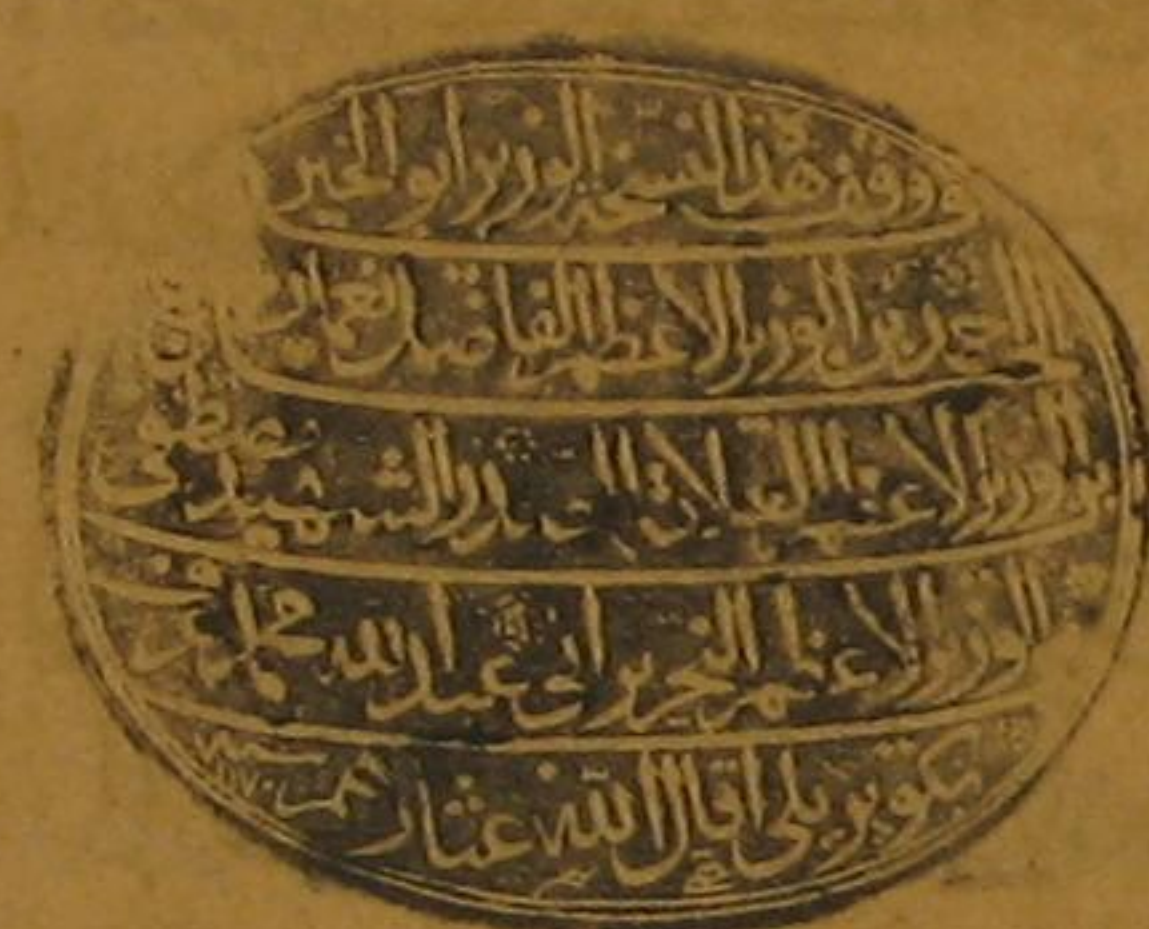 وقف هذا النسخة الوزير ابو الخير
الحاج احمد بن الوزير الاعظم الفاضل نعمان
ابن الوزير الاعظم العلامة الصدر الشهيد مصطفى بن
الوزير الاعظم النحرير ابي عبد الله محمد عرف
بكوبريلي اقال الله عثارهم